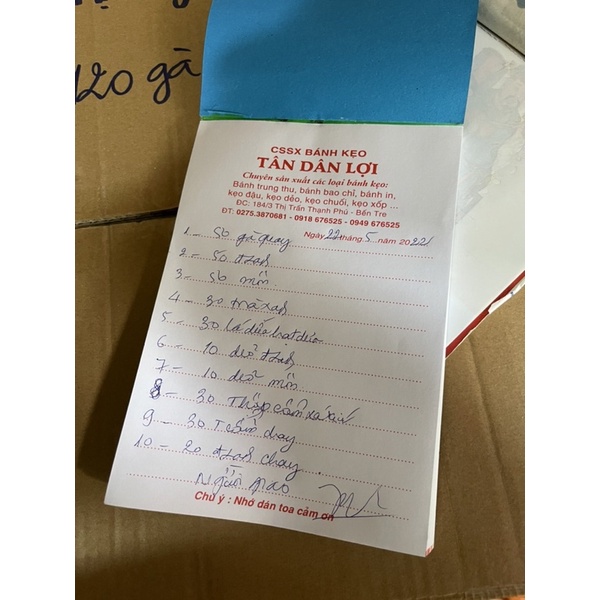 120 gà
CSSX BÁNH KẸO
TÂN DÂN LỢI
Chuyên sản xuất các loại bánh kẹo:
Bánh trung thu, bánh bao chỉ, bánh in,
kẹo đậu, kẹo dẻo, kẹo chuối, kẹo xốp ...
ĐC: 184/3 Thị Trấn Thạnh Phú - Bến Tre
ĐT: 0275.3870681 - 0918 676525 - 0949 676525
Ngày 22 tháng 5 năm 2022
1 - 50 gà quay
2 - 50 đzas
3 - 50 môn
4 - 30 trà xas
5 - 30 lá dứa hạt dưa
6 - 10 dẻo đzas
7 - 10 dẻo môn
8 - 30 Thập cẩm xá xíu
9 - 30 chay
10 - 20 đzas chay
Người giao
Chú ý : Nhớ dán toa cảm ơn